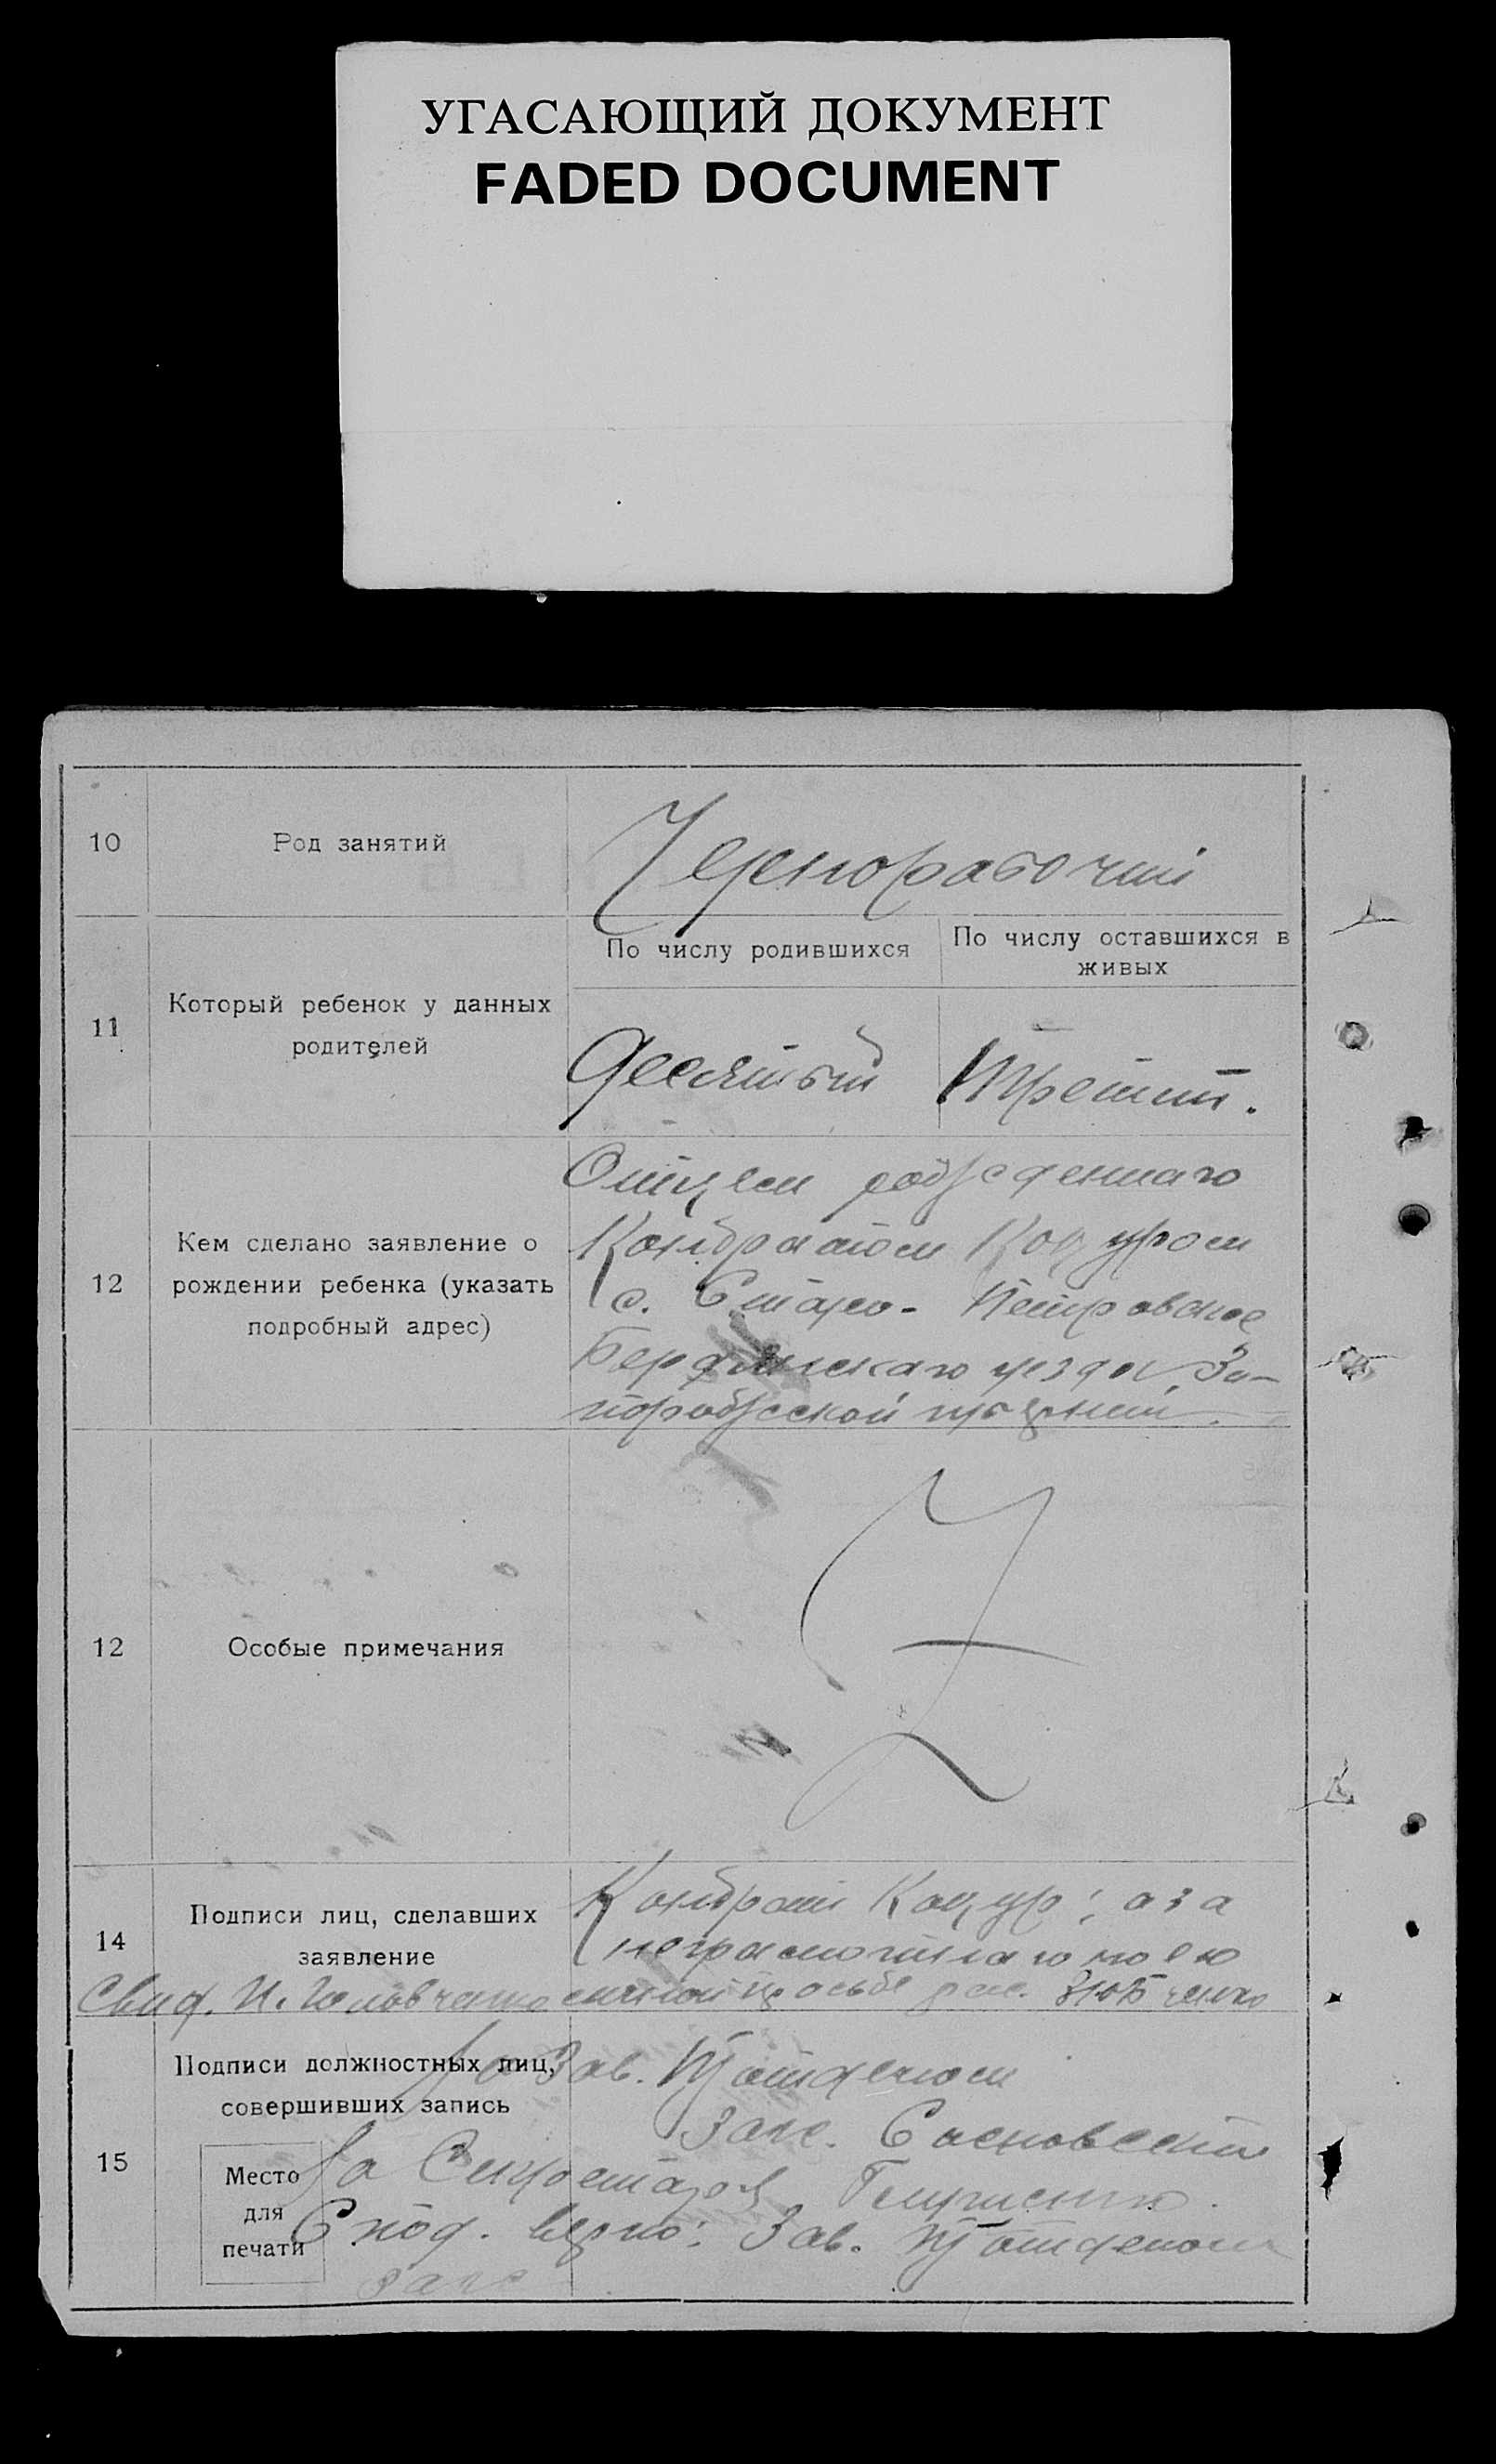 УГАСАЮЩИЙ ДОКУМЕНТ
FADED DOCUMENT
10
Род занятий
Чернорабочий
11
Который ребенок у данных
родителей
По числу родившихся
По числу оставшихся в
живых
Десятый
Третий.
12
Кем сделано заявление о
рождении ребенка (указать
подробный адрес)
Отцем рожденнаго
Кондратом Коцуром
с. Старо-Петровское
Бердянскаго уезда, За-
порожской губернии.
12
Особые примечания
14
Подписи лиц, сделавших
заявление
Кондрат Коцур; а за
неграмотнаго по его
личной просьбе рас.
15
Подписи должностных лиц,
совершивших запись
Место
для
печати
За Зав. П/отделом
Загс. Сосновский
За Секретаря
С под. верно: Зав. П/отделом
Загс